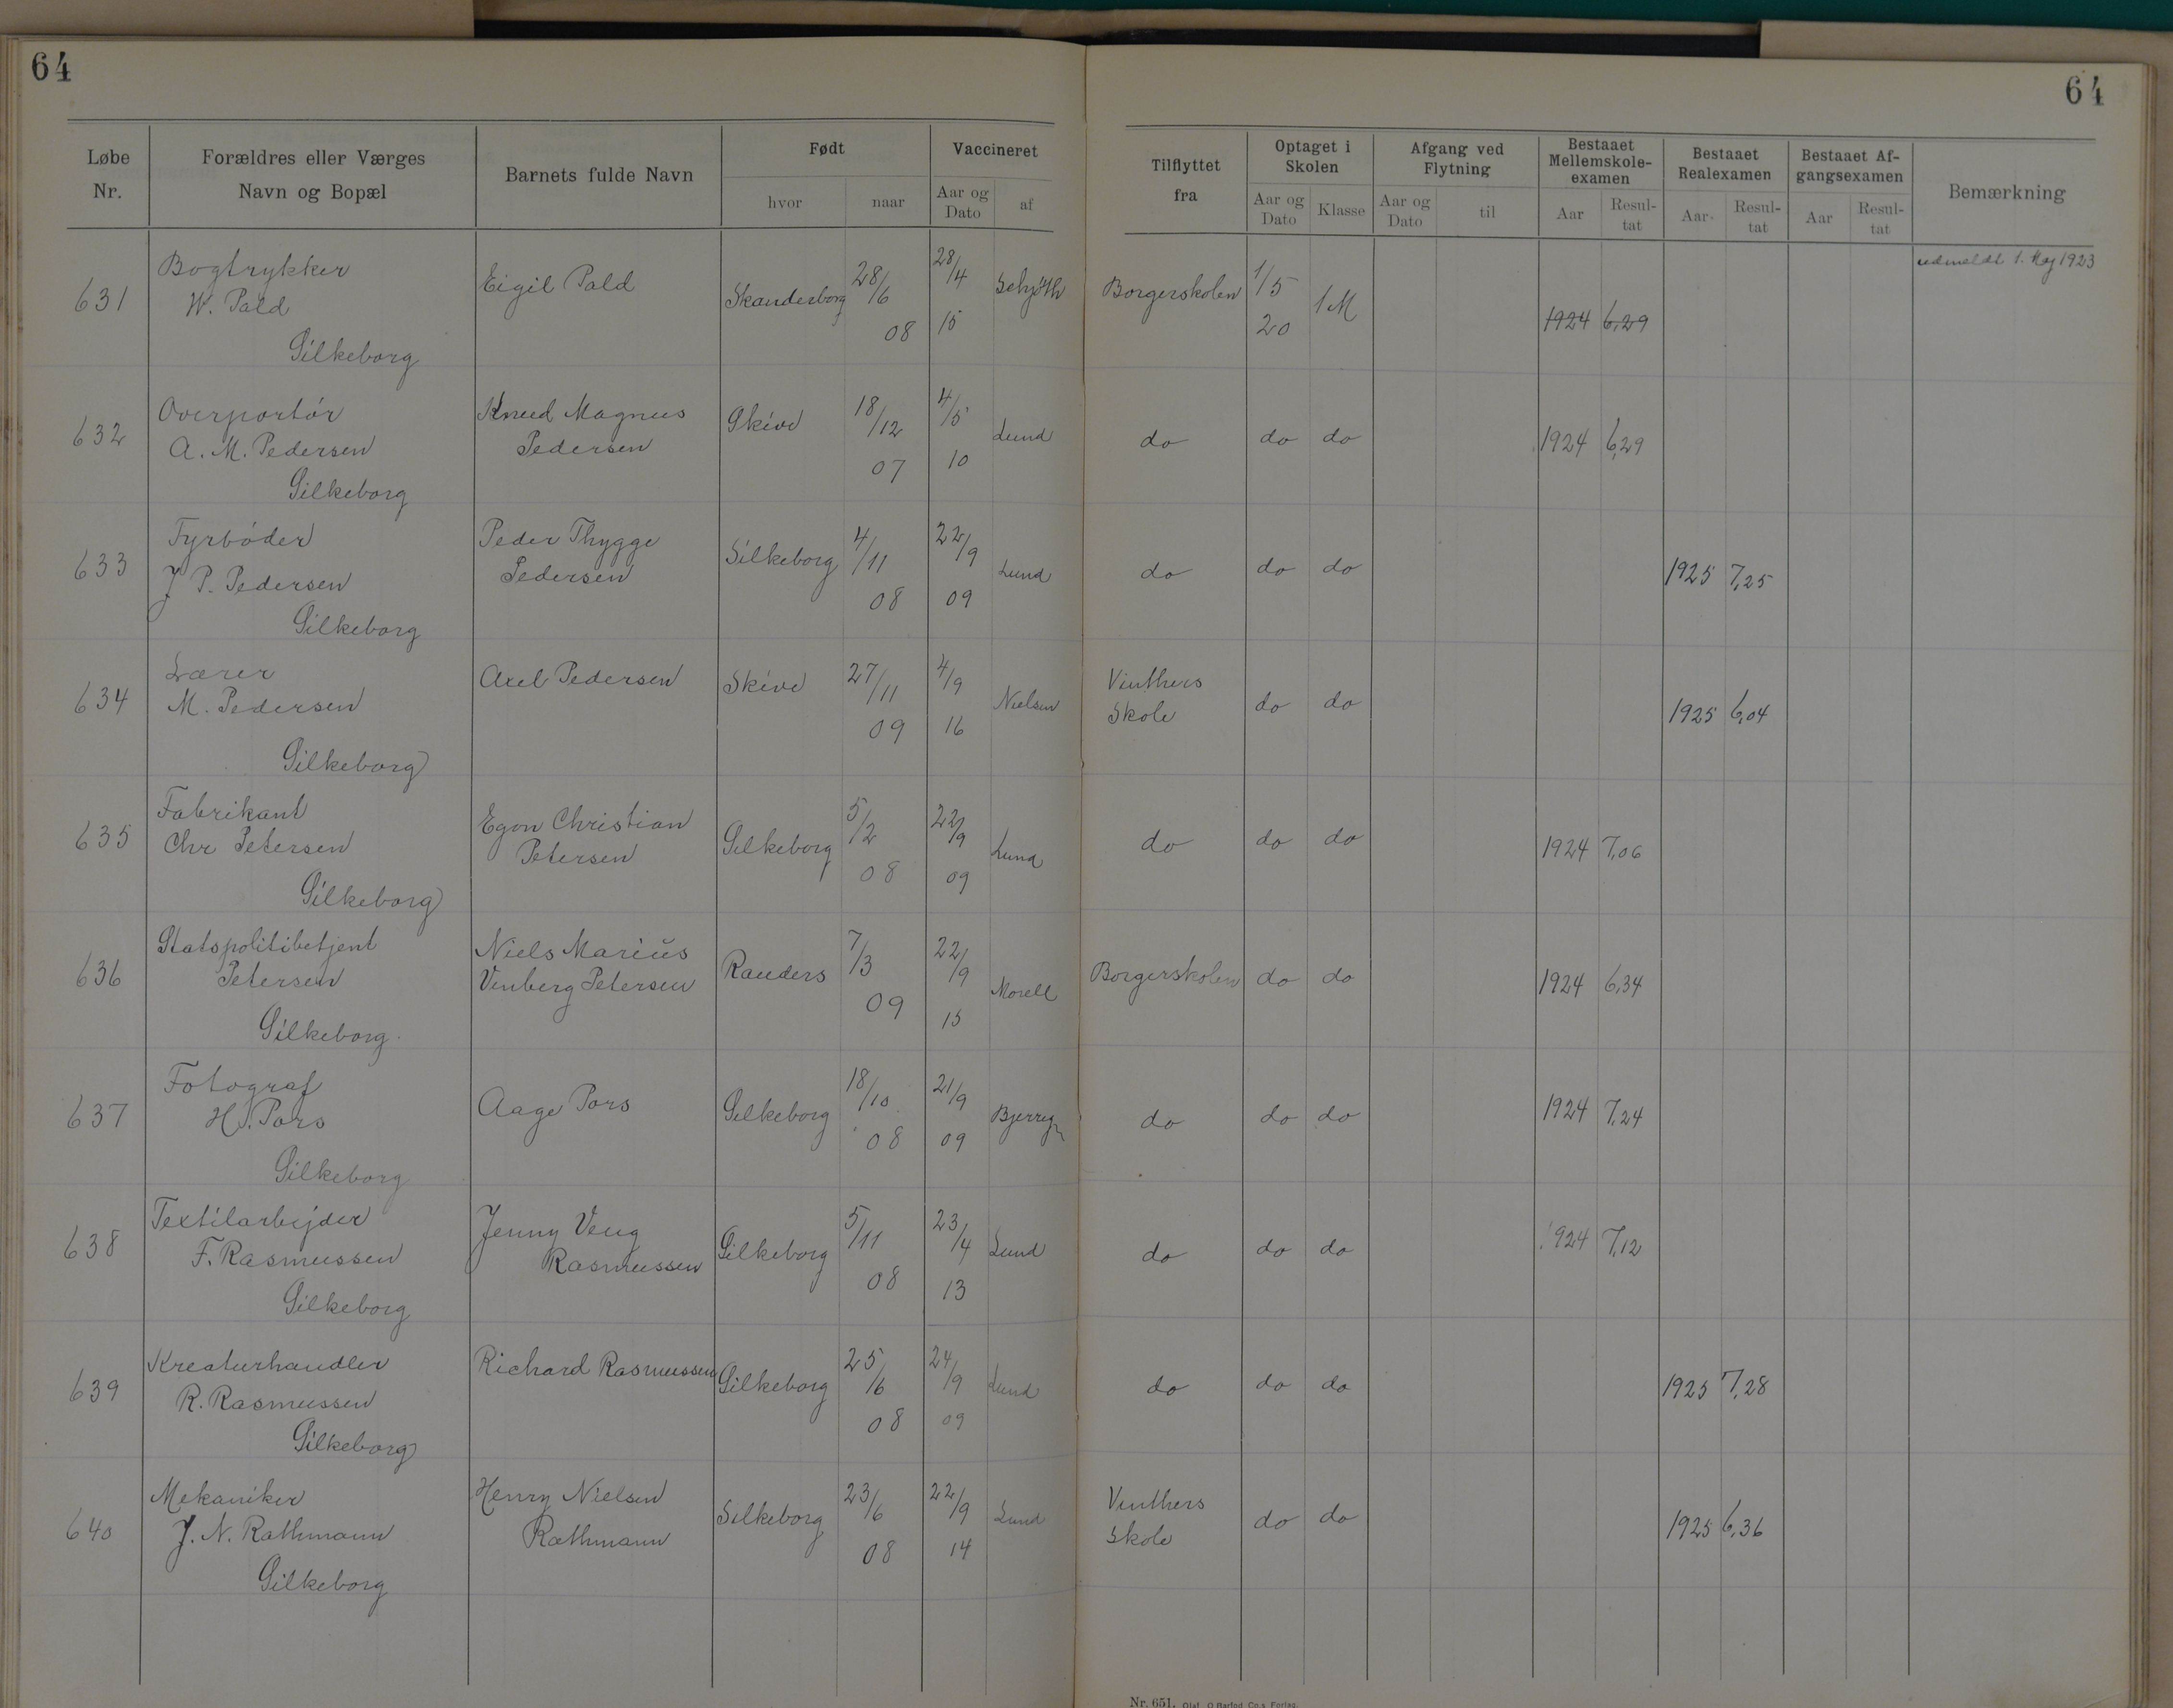 64
64
Løbe Nr.
Forældres eller Værges Navn og Bopæl
Barnets fulde Navn
Født
hvor
naar
Vaccineret
Aar og Dato
af
Tilflyttet fra
Optaget i Skolen
Aar og Dato
Klasse
Afgang ved Flytning
Aar og Dato
til
Bestaaet Mellemskole-examen
Aar
Resul-tat
Bestaaet Realexamen
Aar
Resul-tat
Bestaaet Af-gangsexamen
Aar
Resul-tat
Bemærkning
631 Bogtrykker W. Pald Silkeborg Eigil Pald Skanderborg 28/6 08 28/4 15 Schjøth Borgerskolen 1/5 20 1M 1924 6,29 udmeldt 1. Maj 1923
632 Overportør A. M. Pedersen Silkeborg Knud Magnus Pedersen Skive 18/12 07 4/5 10 Lund do do do 1924 6,29
633 Fyrbøder J P. Pedersen Silkeborg Peder Thygge Pedersen Silkeborg 4/11 08 22/9 09 Lund do do do 1925 7,25
634 Lærer M. Pedersen Silkeborg Axel Pedersen Skive 27/11 09 4/9 16 Nielsen Vinthers Skole do do 1925 6,04
635 Fabrikant Chr Petersen Silkeborg Egon Christian Petersen Silkeborg 5/2 08 22/9 09 Lund do do do 1924 7,06
636 Statspolitibetjent Petersen Silkeborg. Niels Marius Vinberg Petersen Randers 7/3 09 22/9 15 Morell Borgerskolen do do 1924 6,34
637 Fotograf H. Pors Silkeborg Aage Pors Silkeborg 18/10 08 21/9 09 do do do 1924 7,24
638 Textilarbejder F. Rasmussen Silkeborg Jenny Veng Rasmussen Silkeborg 5/11 08 23/4 13 Lund do do do 1924 7,12
639 Kreaturhandler R. Rasmussen Silkeborg Richard Rasmussen Silkeborg 25/6 08 24/9 09 Lund do do do 1925 7,28
640 Mekaniker J. N. Rathmann Silkeborg Henry Nielsen Rathmann Silkeborg 23/6 08 22/9 14 Lund Vinthers Skole do do 1925 6,36
Nr. 651. Olaf. O. Barfod Co.s Forlag.